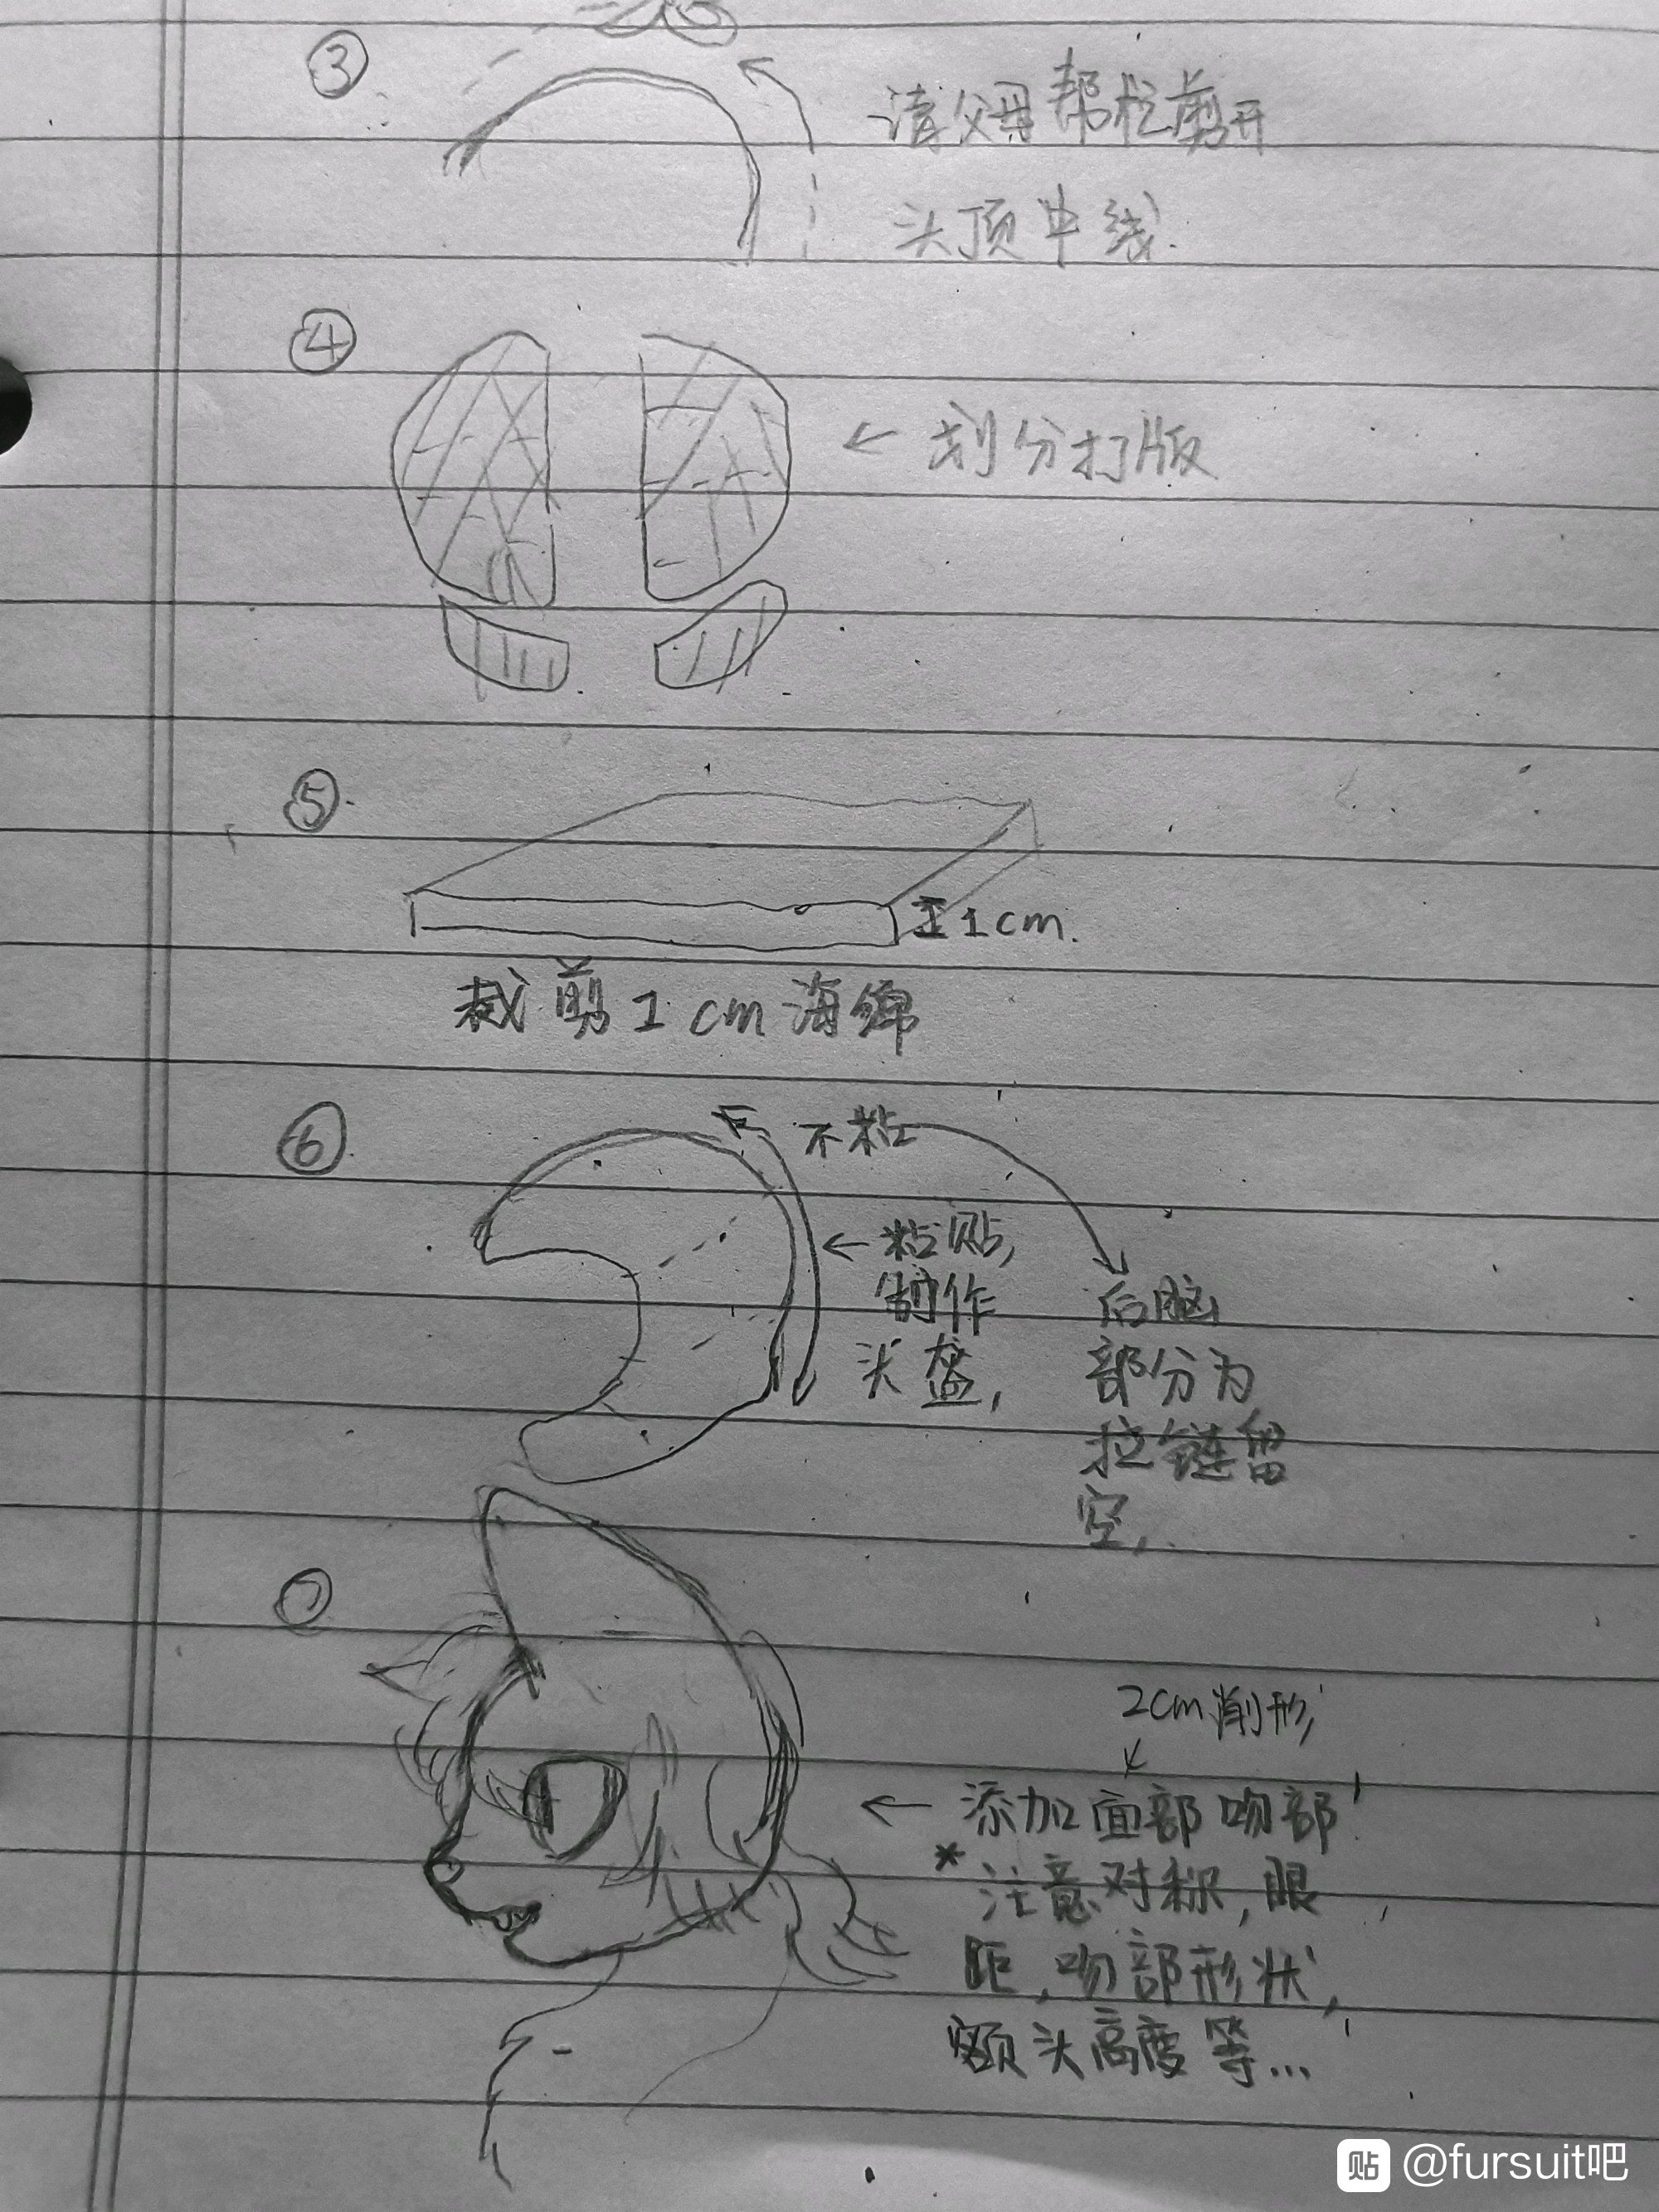 ③
请父母帮忙剪开
头顶中线.
④
← 划分打版
⑤.
1cm.
裁剪1cm海绵
⑥
不粘
← 粘贴,
制作
头盔,
后脑
部分为
拉链留
空,
⑦
2cm削形
← 添加面部吻部
*注意对称,眼
距,吻部形状,
额头高度等...
贴 @fursuit吧